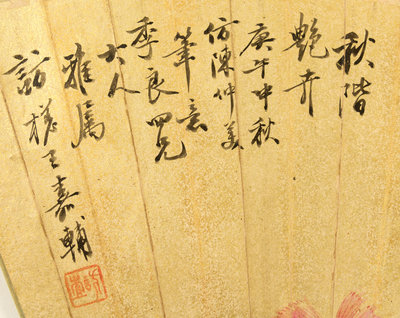 秋階
艷卉
庚午中秋
仿陳仲美
筆意
季良四兄
大人
雅屬
訪樵王嘉輔